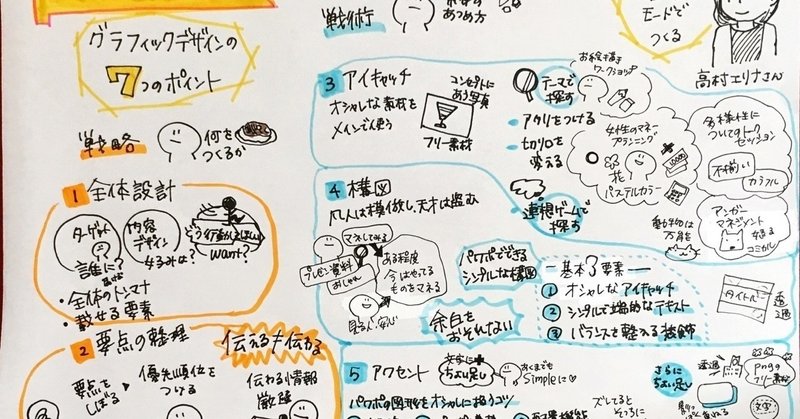 グラフィックデザインの
7つのポイント
戦略
何を
つくるか
1 全体設計
ターゲット
誰に?
内容
デザイン
want?
・全体のトンマナ
・載せる要素
2 要点の整理
伝える≠伝わる
要点を
しぼる
優先順位を
つける
伝わる情報
戦術
あつめ方
モードで
つくる
高村エリナさん
3 アイキャッチ
オシャレな素材を
メインで使う
コンセプトに
あう写真
フリー素材
テーマで
探す
・アカリをつける
・切り口を
変える
お絵描き
ワークショップ
女性のマネー
プランニング
花
パステルカラー
多様性に
ついてのトーク
セッション
不揃い
カラフル
アンガー
マネジメント
コミカル
動物は
万能
連想ゲームで
探す
4 構図
凡人は模倣し、天才は盗む
マネしてみる
プレゼン資料
おしゃれ
ある程度
今はやってる
ものをマネる
パワポでできる
シンプルな構図
余白を
おそれない
基本3要素
① オシャレなアイキャッチ
② シンプルで端的なテキスト
③ バランスを整える装飾
タイトル
5 アクセント
文字に
ちょい足し
あくまでも
Simpleに
パワポの図形をオシャレに扱うコツ
さらに
ちょい足し
透過
pngの
フリー素材
ズレしてると